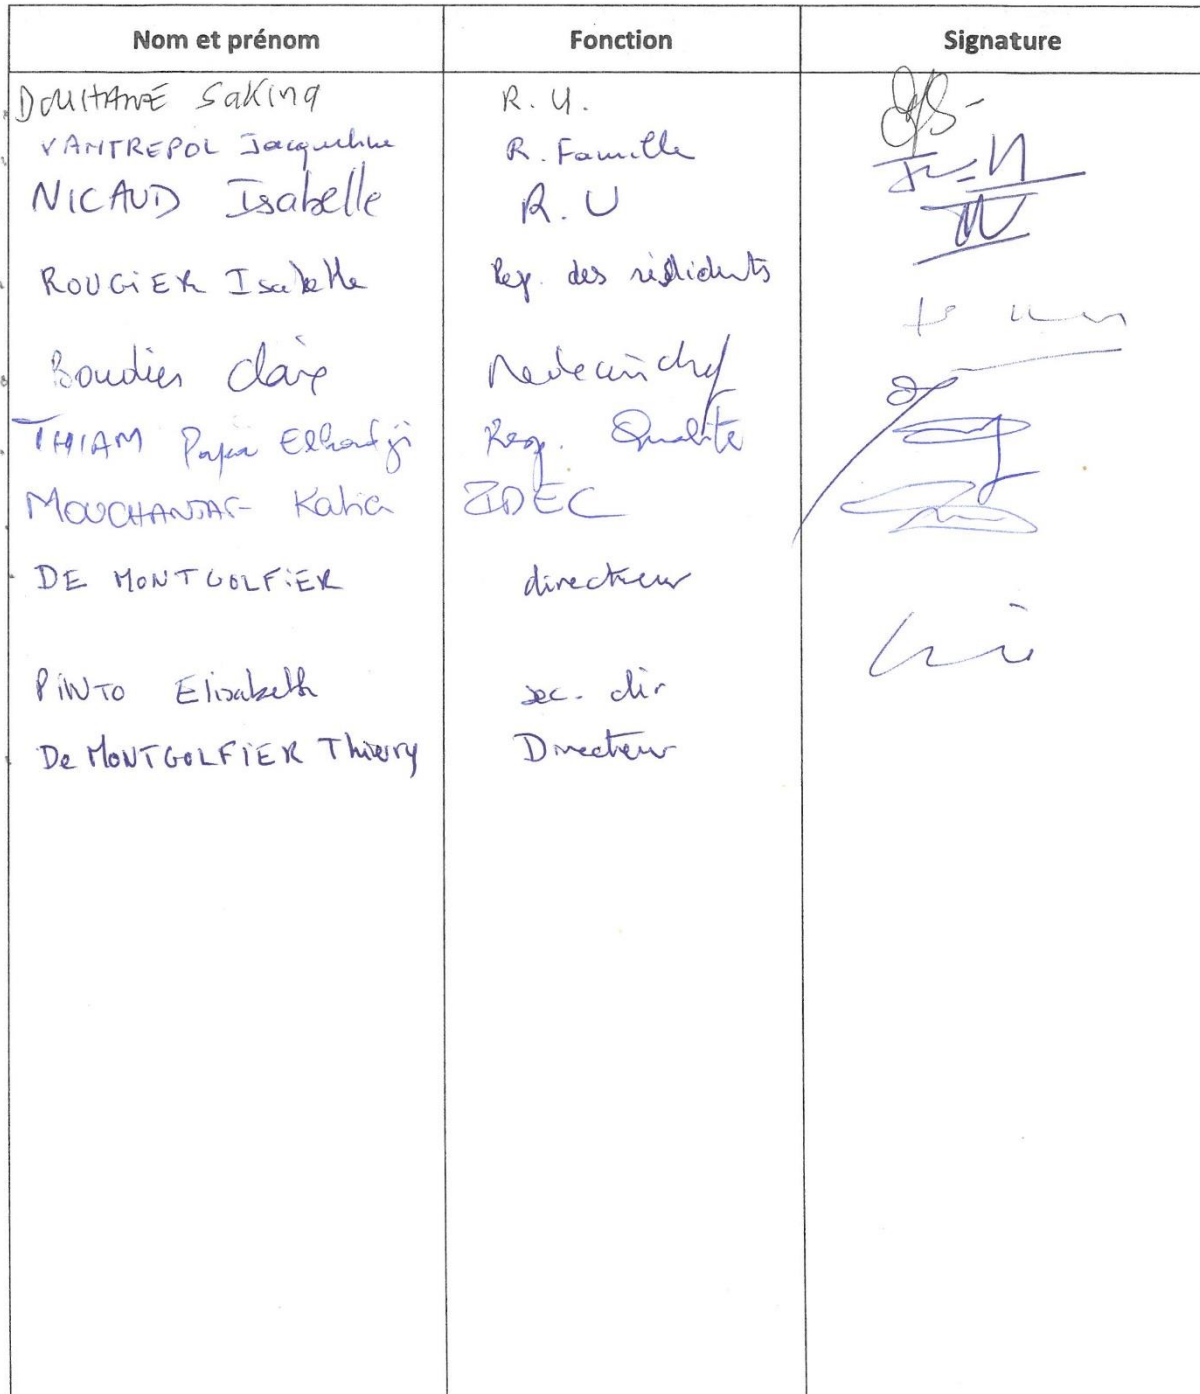 Nom et prénom Fonction Signature
DOUHANE Sakina R. U.
VANTREPOL Jacqueline R. Famille
NICAUD Isabelle R. U
ROUGIER Isabelle Rep. des résidents
Boudier Claire Medecin chef
THIAM Papa Elhadji Resp. Qualité
Katia IDEC
DE MONTGOLFIER directeur
PINTO Elisabeth sec. dir
De MONTGOLFIER Thierry Directeur